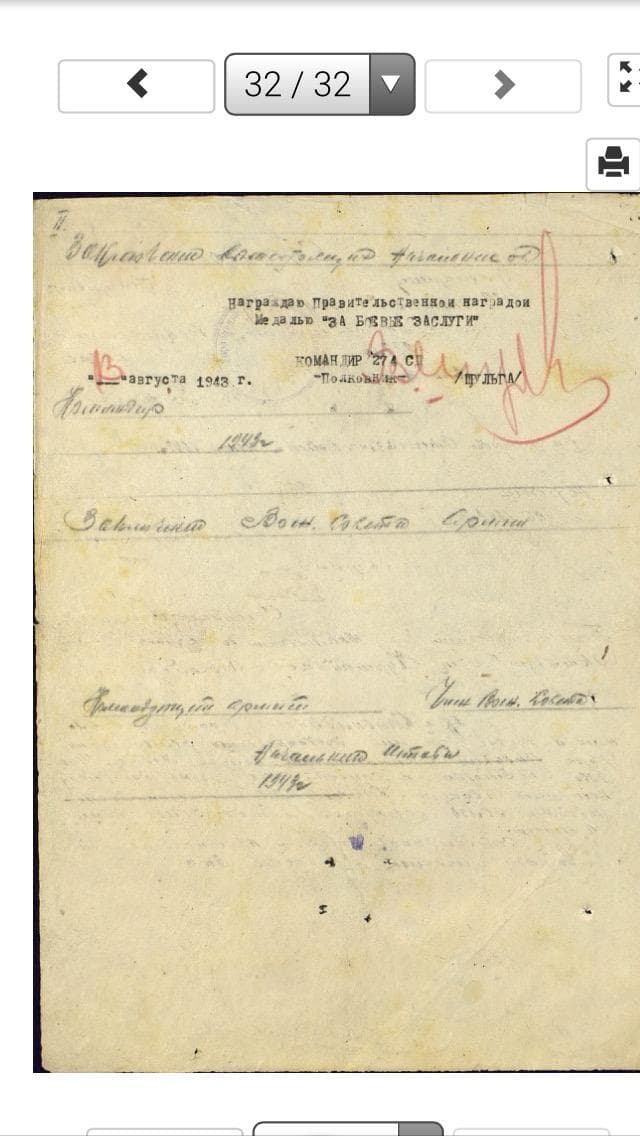 32 / 32
II.
Заключение вышестоящих начальников
Награждаю Правительственной наградой
Медалью "ЗА БОЕВЫЕ ЗАСЛУГИ"
КОМАНДИР 274 СП
"13" августа 1943 г. -Полковник- /ШУЛЬГА/
Командир
1943г
Заключение Воен. Совета Армии
Командующий армией Член Воен. Совета
Начальник Штаба
1943г